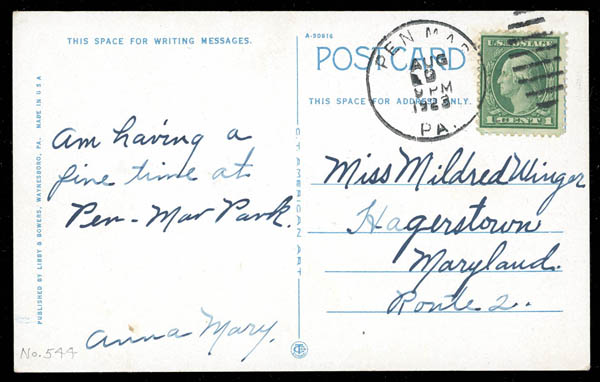 THIS SPACE FOR WRITING MESSAGES.
Am having a
fine time at
Pen-Mar Park.
Anna Mary.
No. 544
PUBLISHED BY LIBBY & BOWERS, WAYNESBORO, PA. MADE IN U S A
C.T. AMERICAN ART
A-90616
POSTCARD
THIS SPACE FOR ADDRESS ONLY.
PEN MAR
AUG
PM
PA.
U.S. POSTAGE
1 CENT 1
Miss Mildred Winger
Hagerstown
Maryland.
Route 2.